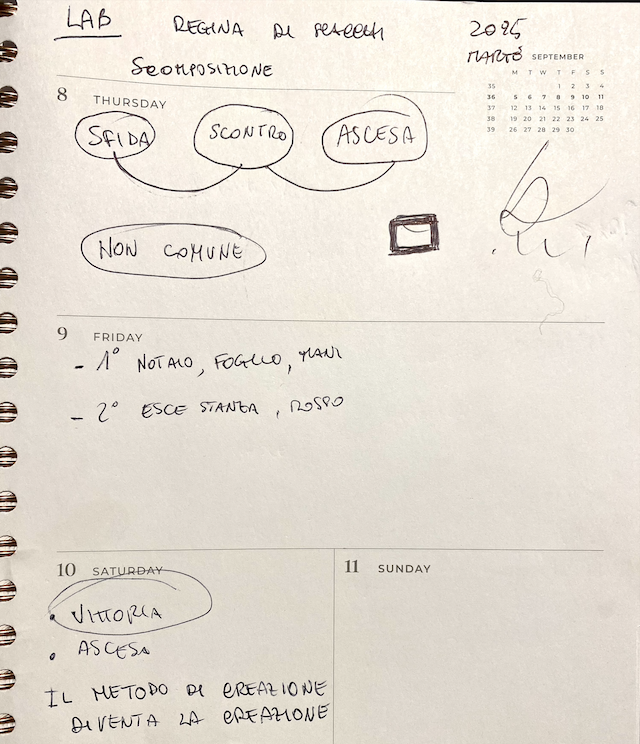 LAB REGINA DI 2025
MARZO SEPTEMBER
SCOMPOSIZIONE
M T W T F S S
35 1 2 3 4
36 5 6 7 8 9 10 11
37 12 13 14 15 16 17 18
38 19 20 21 22 23 24 25
39 26 27 28 29 30
8 THURSDAY
SFIDA SCONTRO ASCESA
NON COMUNE
9 FRIDAY
- 1° NOTAIO, FOGLIO, MANI
- 2° ESCE STANZA, ROSPO
10 SATURDAY 11 SUNDAY
• VITTORIA
• ASCESA
IL METODO DI CREAZIONE
DIVENTA LA CREAZIONE